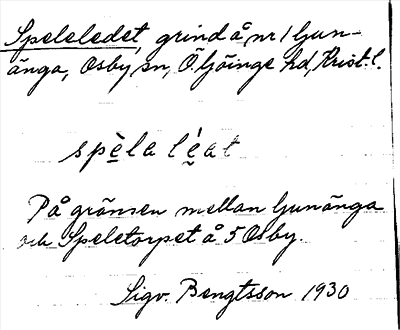 Speleledet, grind å nr 1 Ljun-
änga, Osby sn, Ö. Göinge hd, Krist. l.
spè̤la lé̤at
På gränsen mellan Ljunänga
och Speletorpet å 5 Osby.
Sigv. Bengtsson 1930